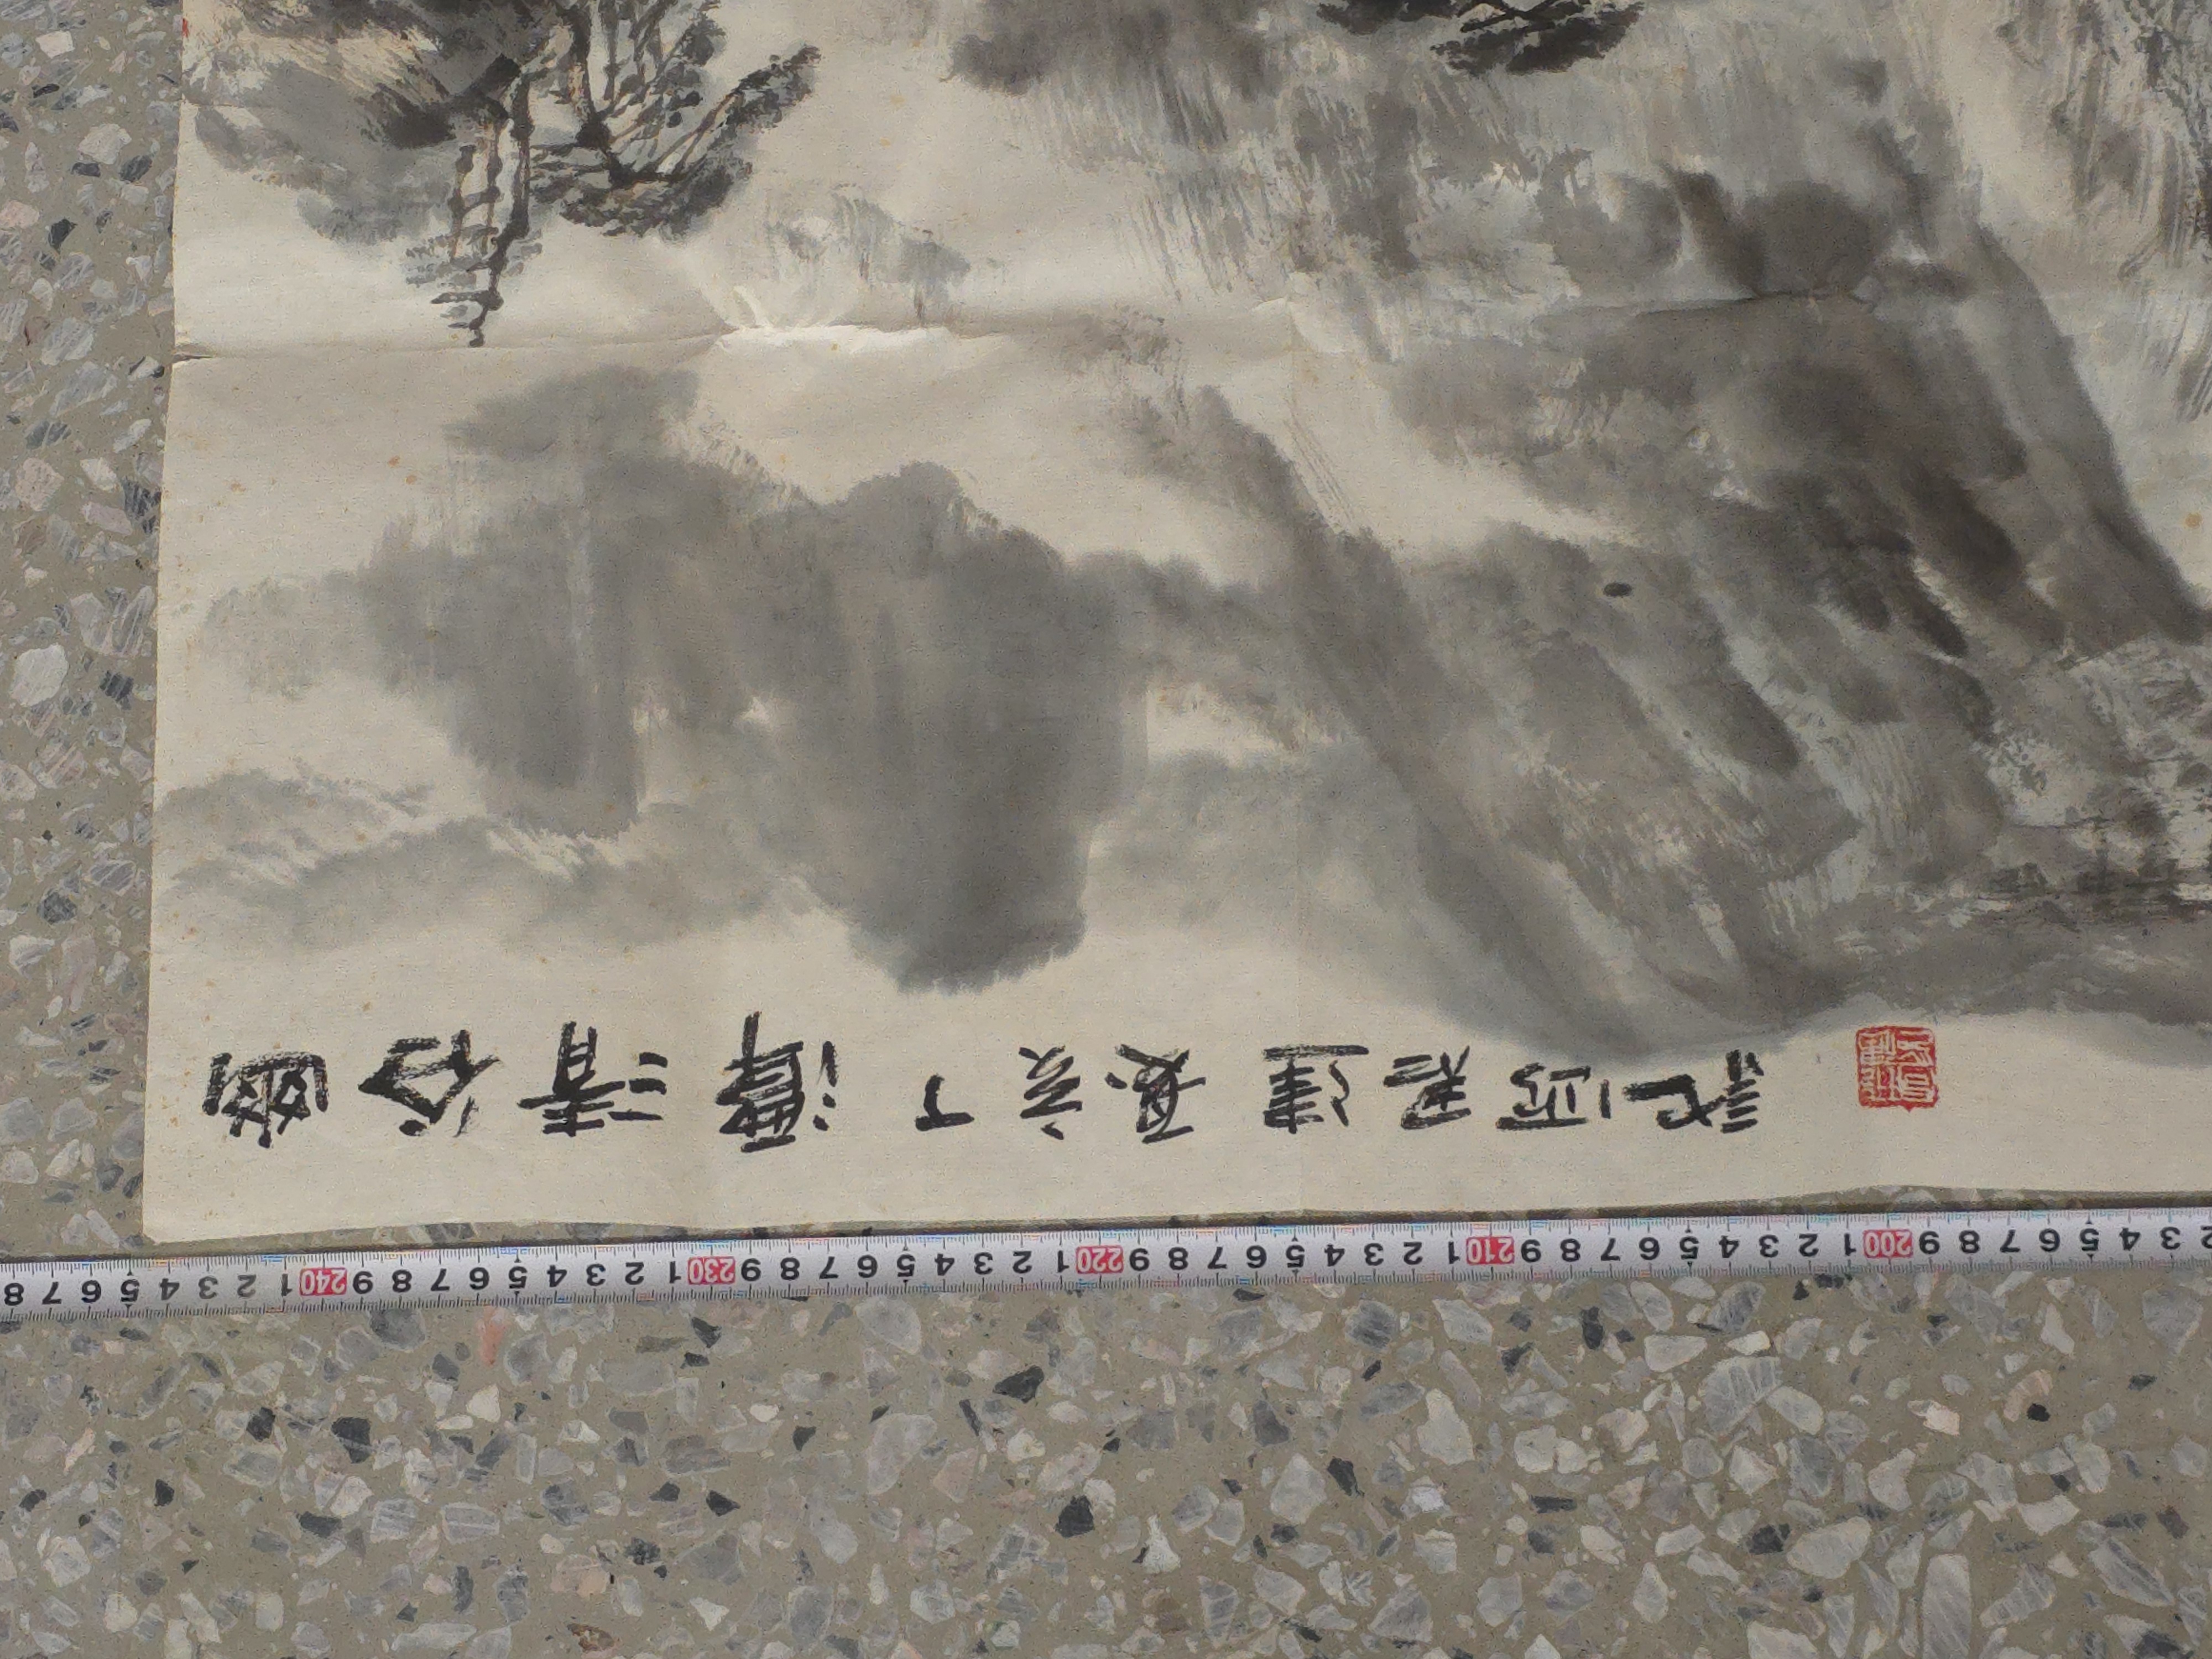 幽谷清潭丁亥夏建君
2 3 4 5 6 7 8 9 200 1 2 3 4 5 6 7 8 9 210 1 2 3 4 5 6 7 8 9 220 1 2 3 4 5 6 7 8 9 230 1 2 3 4 5 6 7 8 9 240 1 2 3 4 5 6 7 8